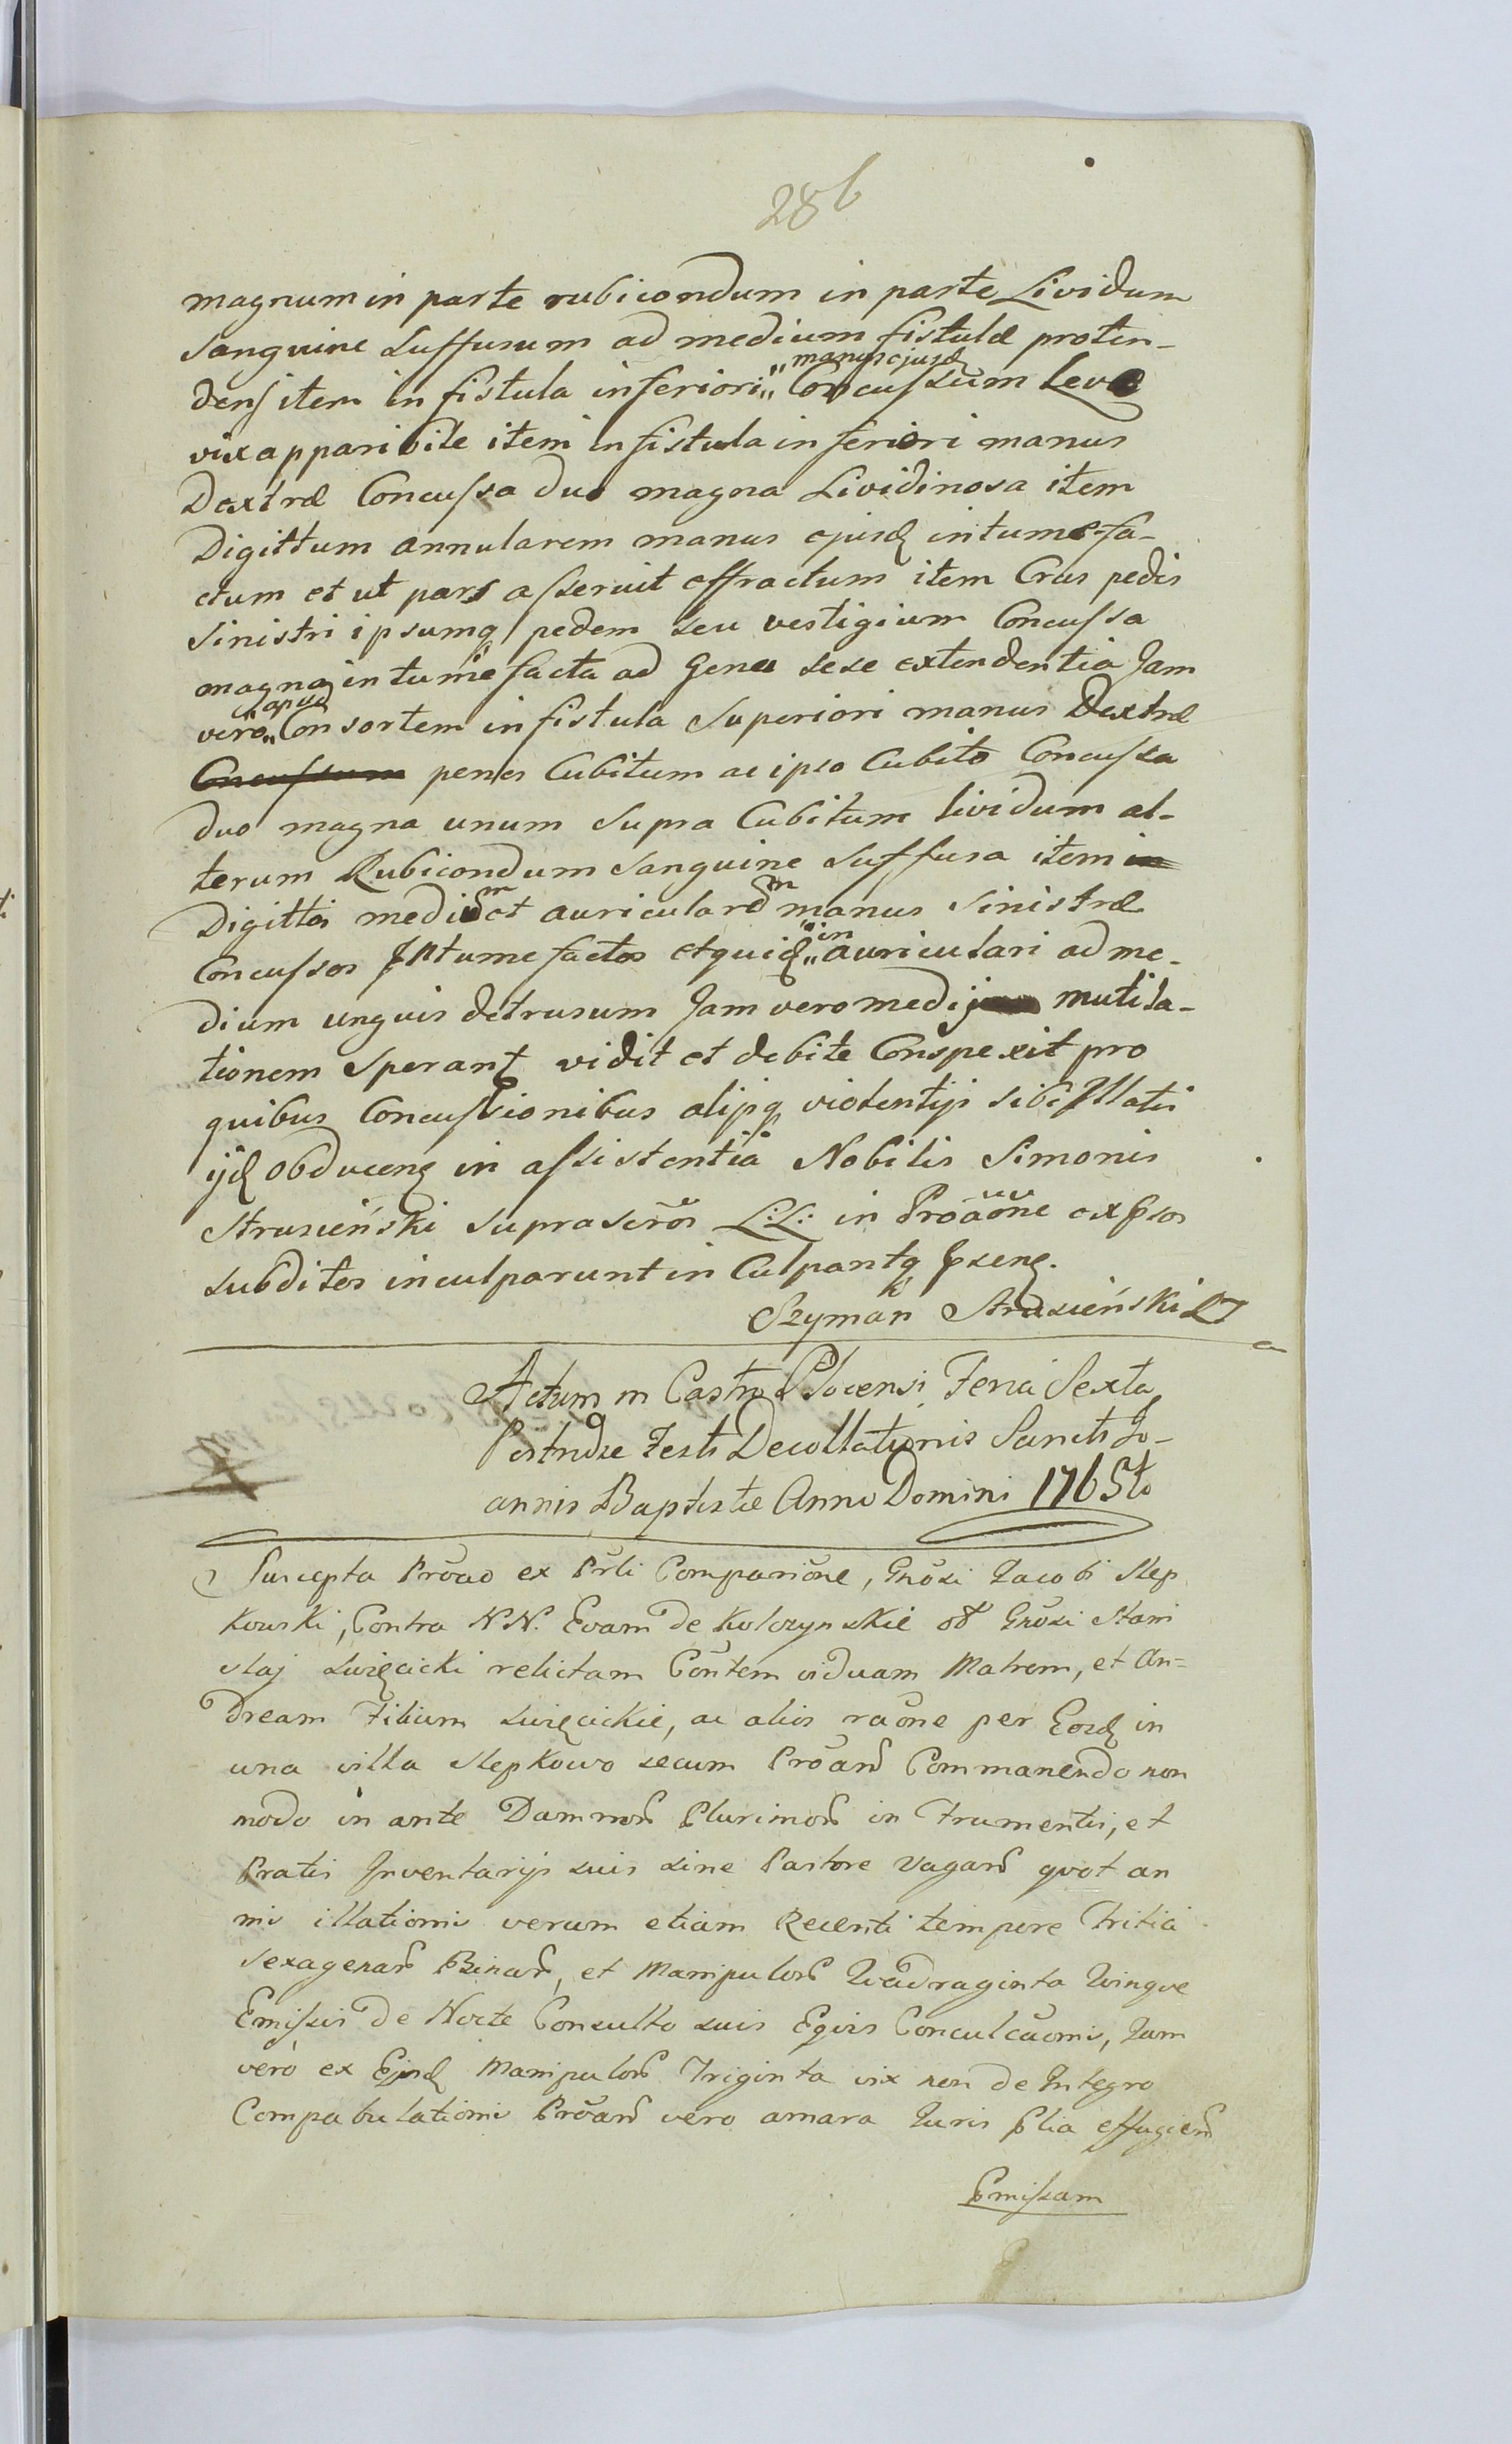 286
magnum in parte rubicondum in parte Lividum
Sanguine Suffusum ad medium fistulæ proten-
dens item in fistula inferiori manus ejusd Concussum Leve
vix apparibile item in fistula inferiori manus
Dextræ Concussa duo magna Lividinosa item
Digittum annularem manus ejusd intumefa-
ctum et ut pars asseruit effractum item Crus pedis
Sinistri ipsumq pedem seu vestigium Concussa
magna intumefacta ad Genu sese extendentia Jam
vero apud Consortem in fistula Superiori manus Dextræ
Concussum penes Cubitum ac ipso Cubito Concussa
duo magna unum Supra Cubitum lividum al-
terum Rubicondum Sanguine Suffusa item in
Digittos medium et auricularem manus Sinistræ
Concussos Intumefactos et quid in auriculari ad me-
dium unguis detrusum Jam vero medij mutila-
tionem Sperant vidit et debite Conspexit pro
quibus Concussionibus alijsq violentijs sibi Illatis
ijd obducen in assistentia Nobilis Simonis
Strusieński suprascrõs L:L: in Prõaõne expsos
subditos inculparunt in Culpantq psen.
Szyman Strusieński
Actum in Castro Plocensi Feria Sexta
Postridie Festi Decollationis Sancti Jo-
annis Baptistæ Anno Domini 1765to
Suscepta Prõao ex Prli Comparitõne, Gnõsi Jacobi Slep
kowski, Contra N.N. Evam de Kolczynskie ol Gnõsi Stani
slaj Swięcicki relictam Cõntem viduam Matrem, et An=
dream Filium Swięcickie, ac alios raõne per Eosd in
una villa Slepkowo secum Prõan Commanendo non
modo in ante Damnor Plurimor in Frumentis, et
Pratis Inventarijs suis sine Pastore vagan quot an
nis illationis verum etiam Recenti tempore Tritici
Sexagenar Binar, et Manipulor Quadraginta Quinque
Emissis de Nocte Consulto suis Equis Conculcãonis, Jam
verò ex Eijsd Manipulor Triginta vix non de Integro
Compabulationis Prõan vero amara Juris plia effugien
Pmissam